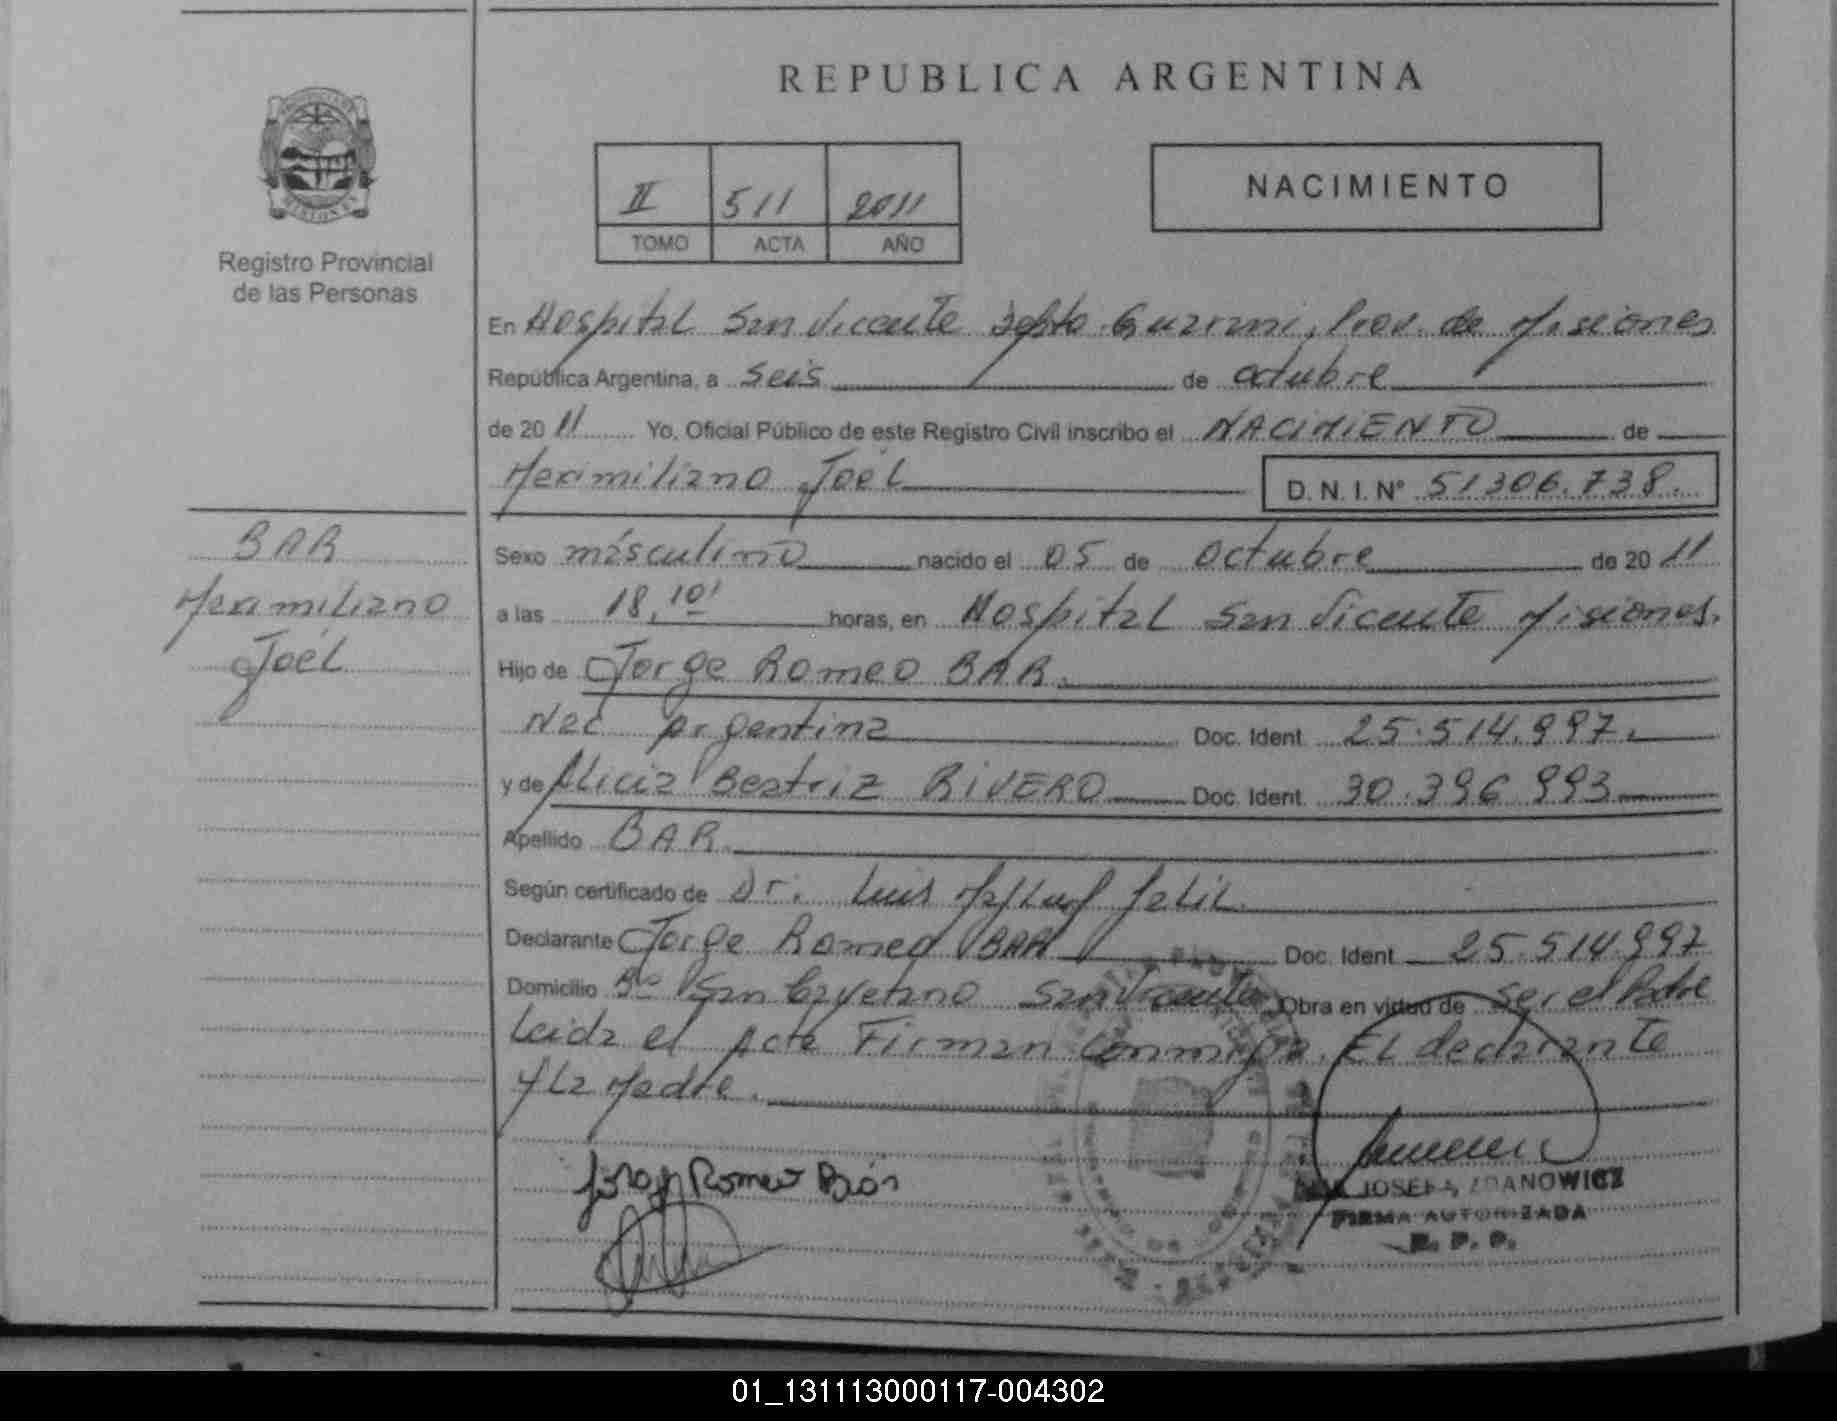 REPUBLICA ARGENTINA
II 511 2011
TOMO ACTA AÑO
NACIMIENTO
MISIONES
Registro Provincial
de las Personas
En Hospital San Vicente Depto. Guarani, Prov. de Misiones
República Argentina, a seis de octubre
de 2011 Yo, Oficial Público de este Registro Civil inscribo el NACIMIENTO de
Maximiliano Joél D.N.I. Nº 51306.738.
BAR
Maximiliano
Joél
Sexo masculino nacido el 05 de octubre de 2011
a las 18,10' horas, en Hospital San Vicente Misiones.
Hijo de Jorge Romeo BAR.
Nac Argentina Doc. Ident. 25.514.997.
y de Alicia Beatriz RIVERO Doc. Ident. 30.396.993
Apellido BAR.
Según certificado de Dr. Luis Jalil
Declarante Jorge Romeo BAR Doc. Ident. 25.514.997
Domicilio Bº San Cayetano San Vicente Obra en virtud de ser el Padre
Leida el Acta Firman Conmigo. El declarante
y La Madre.
Romeo
JOSEFA ZDANOWICZ
FIRMA AUTORIZADA
R. P. P.
01_131113000117-004302